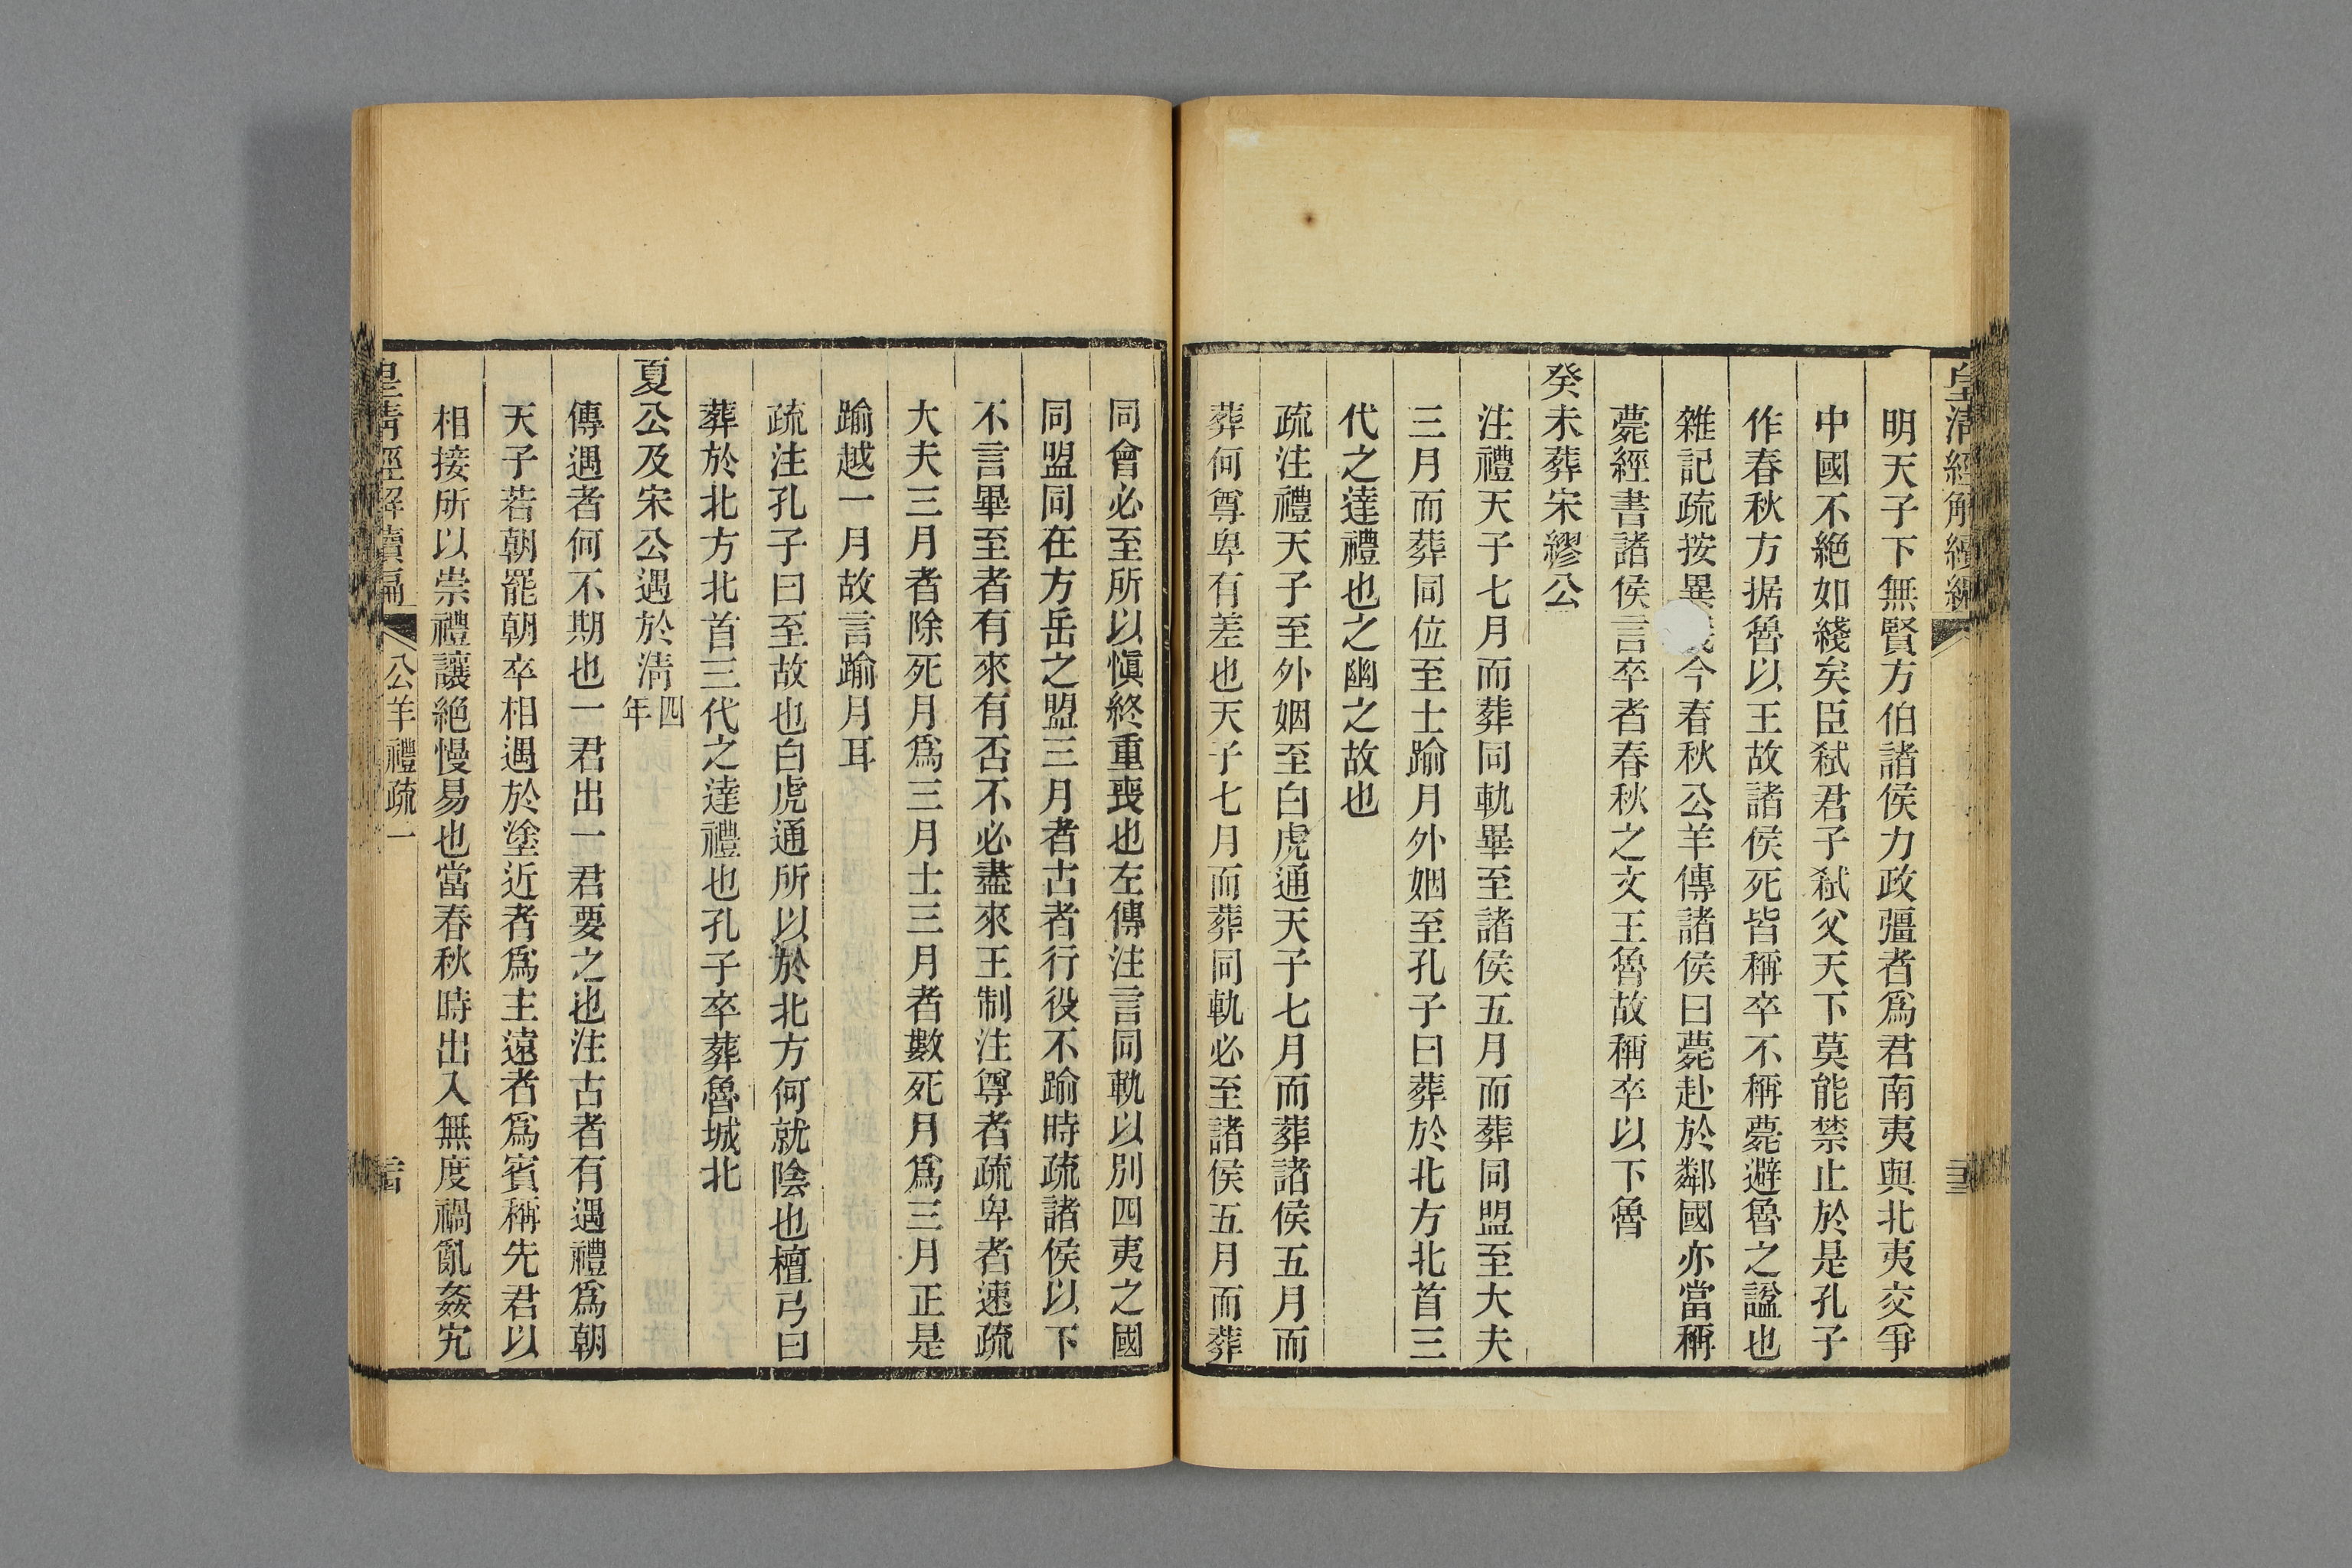 皇清經解續編
明天子下無賢方伯諸侯力政彊者爲君南夷與北夷交爭
中國不絶如綫矣臣弑君子弑父天下莫能禁止於是孔子
作春秋方据魯以王故諸侯死皆稱卒不稱薨避魯之諡也
雜記疏按異今春秋公羊傳諸侯曰薨赴於鄰國亦當稱
薨經書諸侯言卒者春秋之文王魯故稱卒以下魯
癸未葬宋繆公
注禮天子七月而葬同軌畢至諸侯五月而葬同盟至大夫
三月而葬同位至士踰月外姻至孔子曰葬於北方北首三
代之達禮也之幽之故也
疏注禮天子至外姻至白虎通天子七月而葬諸侯五月而
葬何尊卑有差也天子七月而葬同軌必至諸侯五月而葬
同會必至所以愼終重喪也左傳注言同軌以別四夷之國
同盟同在方岳之盟三月者古者行役不踰時疏諸侯以下
不言畢至者有來有否不必盡來王制注尊者疏卑者速疏
大夫三月者除死月爲三月士三月者數死月爲三月正是
踰越一月故言踰月耳
疏注孔子曰至故也白虎通所以於北方何就陰也檀弓曰
葬於北方北首三代之達禮也孔子卒葬魯城北
夏公及宋公遇於淸四年
傳遇者何不期也一君出一君要之也注古者有遇禮爲朝
天子若朝罷朝卒相遇於塗近者爲主遠者爲賓稱先君以
相接所以崇禮讓絶慢易也當春秋時出入無度禍亂姦宄
皇清經解續編 公羊禮疏一